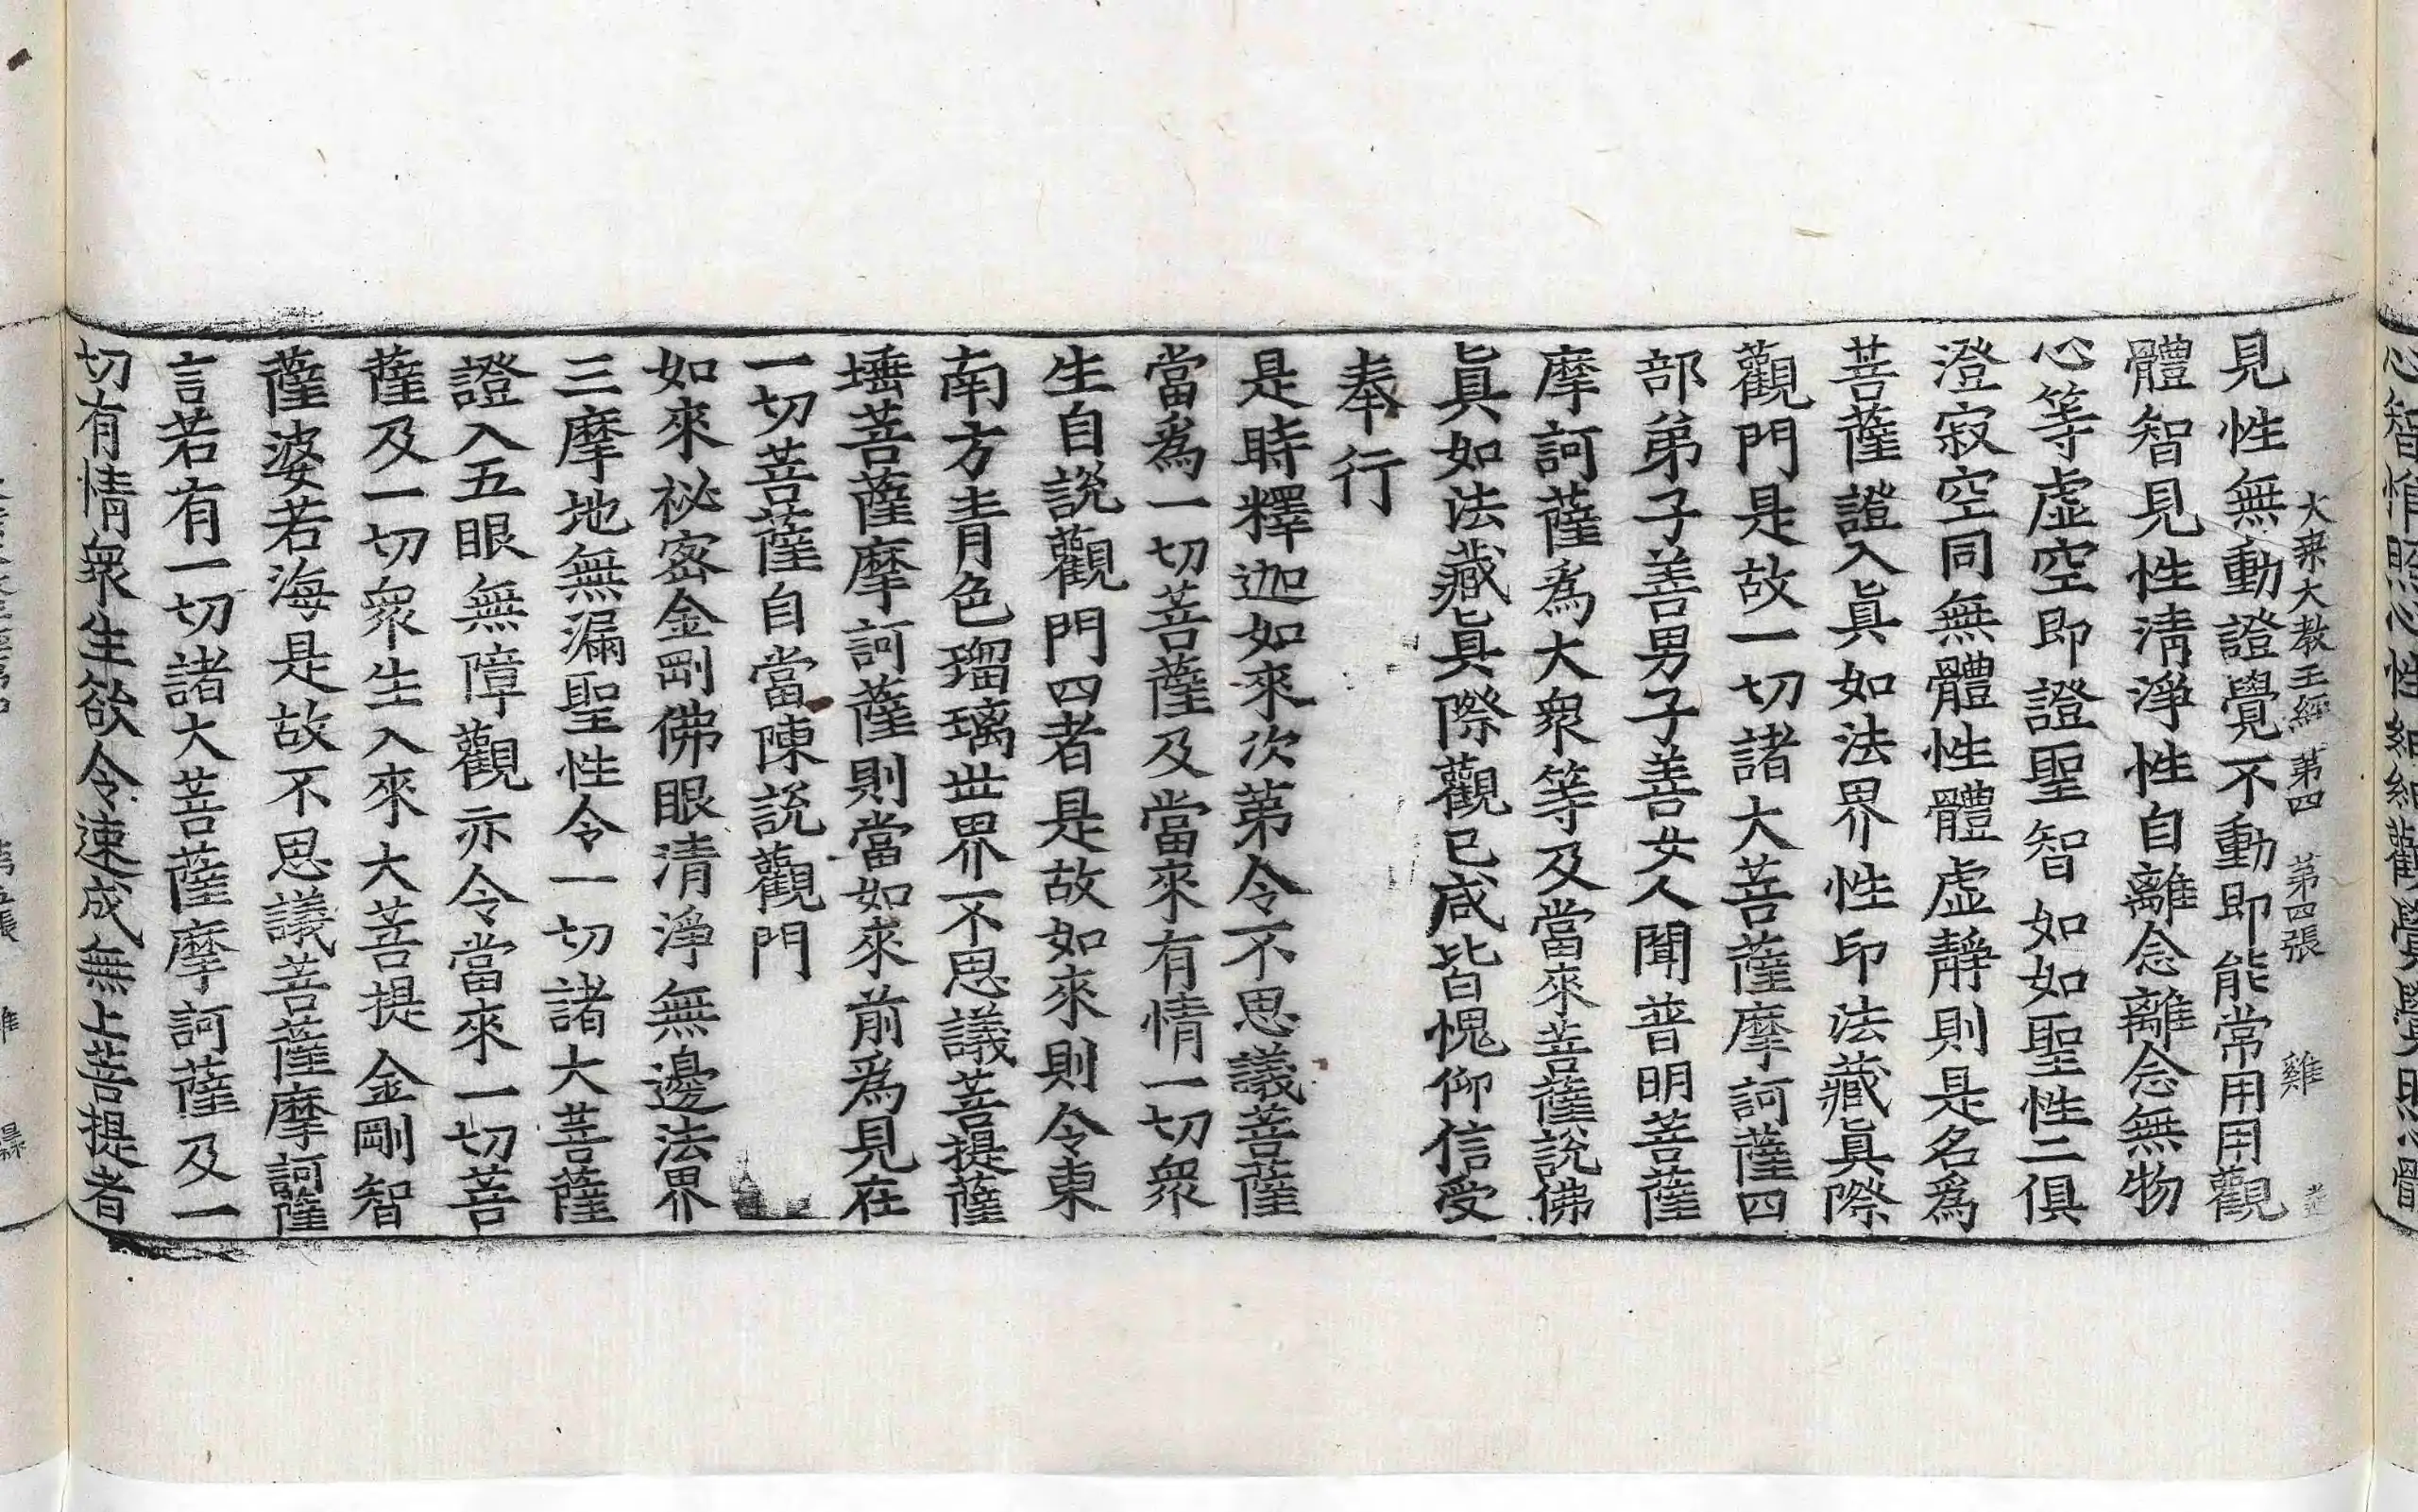 心智惟照心性細細觀覺覺照心體
大乘大教王經第四 第四張 雞
見性無動證覺不動即能常用用觀
體智見性淸淨性自離念離念無物
心等虛空即證聖智如如聖性二俱
澄寂空同無體性體虛靜則是名爲
菩薩證入眞如法界性印法藏眞際
觀門是故一切諸大菩薩摩訶薩四
部弟子善男子善女人聞普明菩薩
摩訶薩爲大衆等及當來菩薩說佛
眞如法藏眞際觀已咸皆愧仰信受
奉行
是時釋迦如來次第令不思議菩薩
當爲一切菩薩及當來有情一切衆
生自說觀門四者是故如來則令東
南方青色瑠璃世界不思議菩提薩
埵菩薩摩訶薩則當如來前爲見在
一切菩薩自當陳說觀門
如來祕密金剛佛眼清淨無邊法界
三摩地無漏聖性令一切諸大菩薩
證入五眼無障觀亦令當來一切菩
薩及一切衆生入來大菩提金剛智
薩婆若海是故不思議菩薩摩訶薩
言若有一切諸大菩薩摩訶薩及一
切有情衆生欲令速成無上菩提者